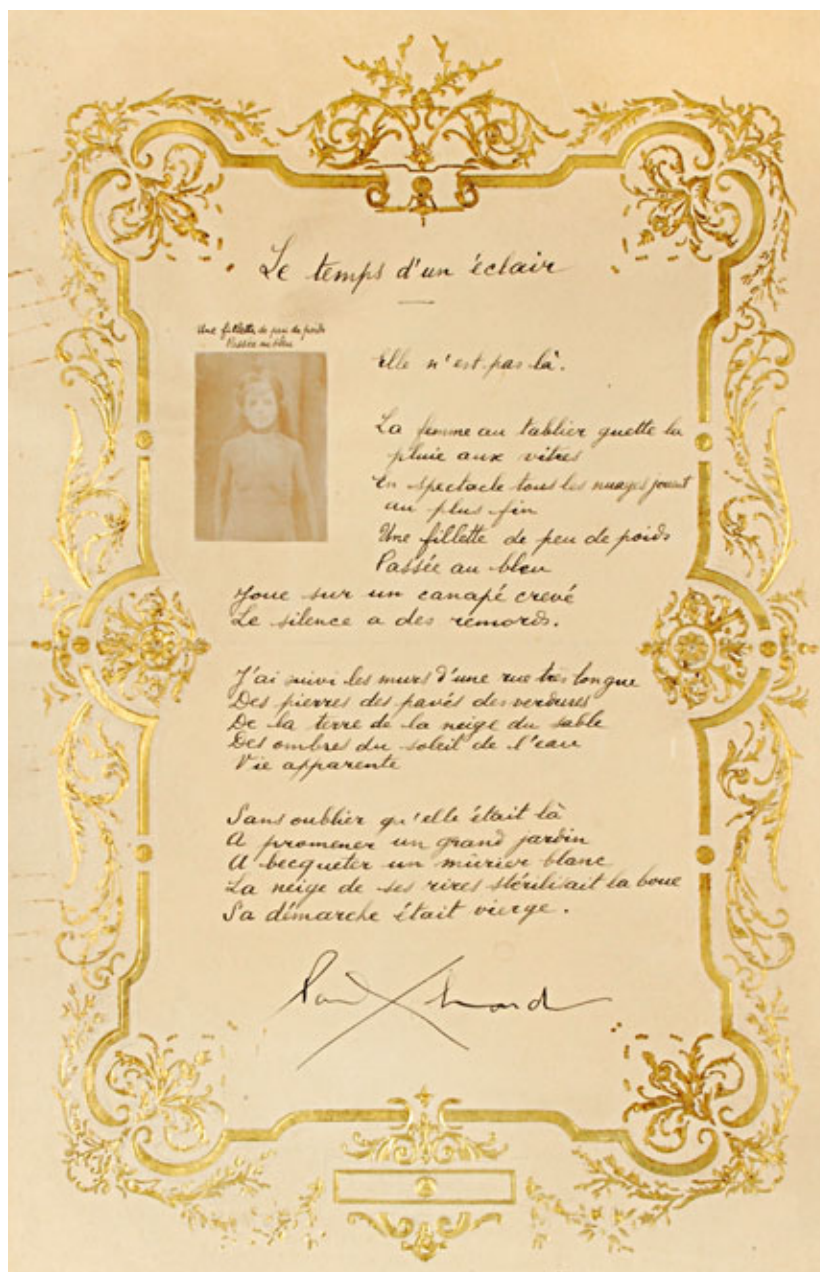 Le temps d'un éclair
Une fillette de peu de poids
Passée au bleu
Elle n'est pas là.
La femme au tablier guette la
pluie aux vitres
En spectacle tous les nuages jouent
au plus fin
Une fillette de peu de poids
Passée au bleu
Joue sur un canapé crevé
Le silence a des remords.
J'ai suivi les murs d'une rue très longue
Des pierres des pavés des verdures
De la terre de la neige du sable
Des ombres du soleil de l'eau
Vie apparente
Sans oublier qu'elle était là
A promener un grand jardin
A becqueter un mûrier blanc
La neige de ses rires stérilisait la boue
Sa démarche était vierge.
Paul Eluard